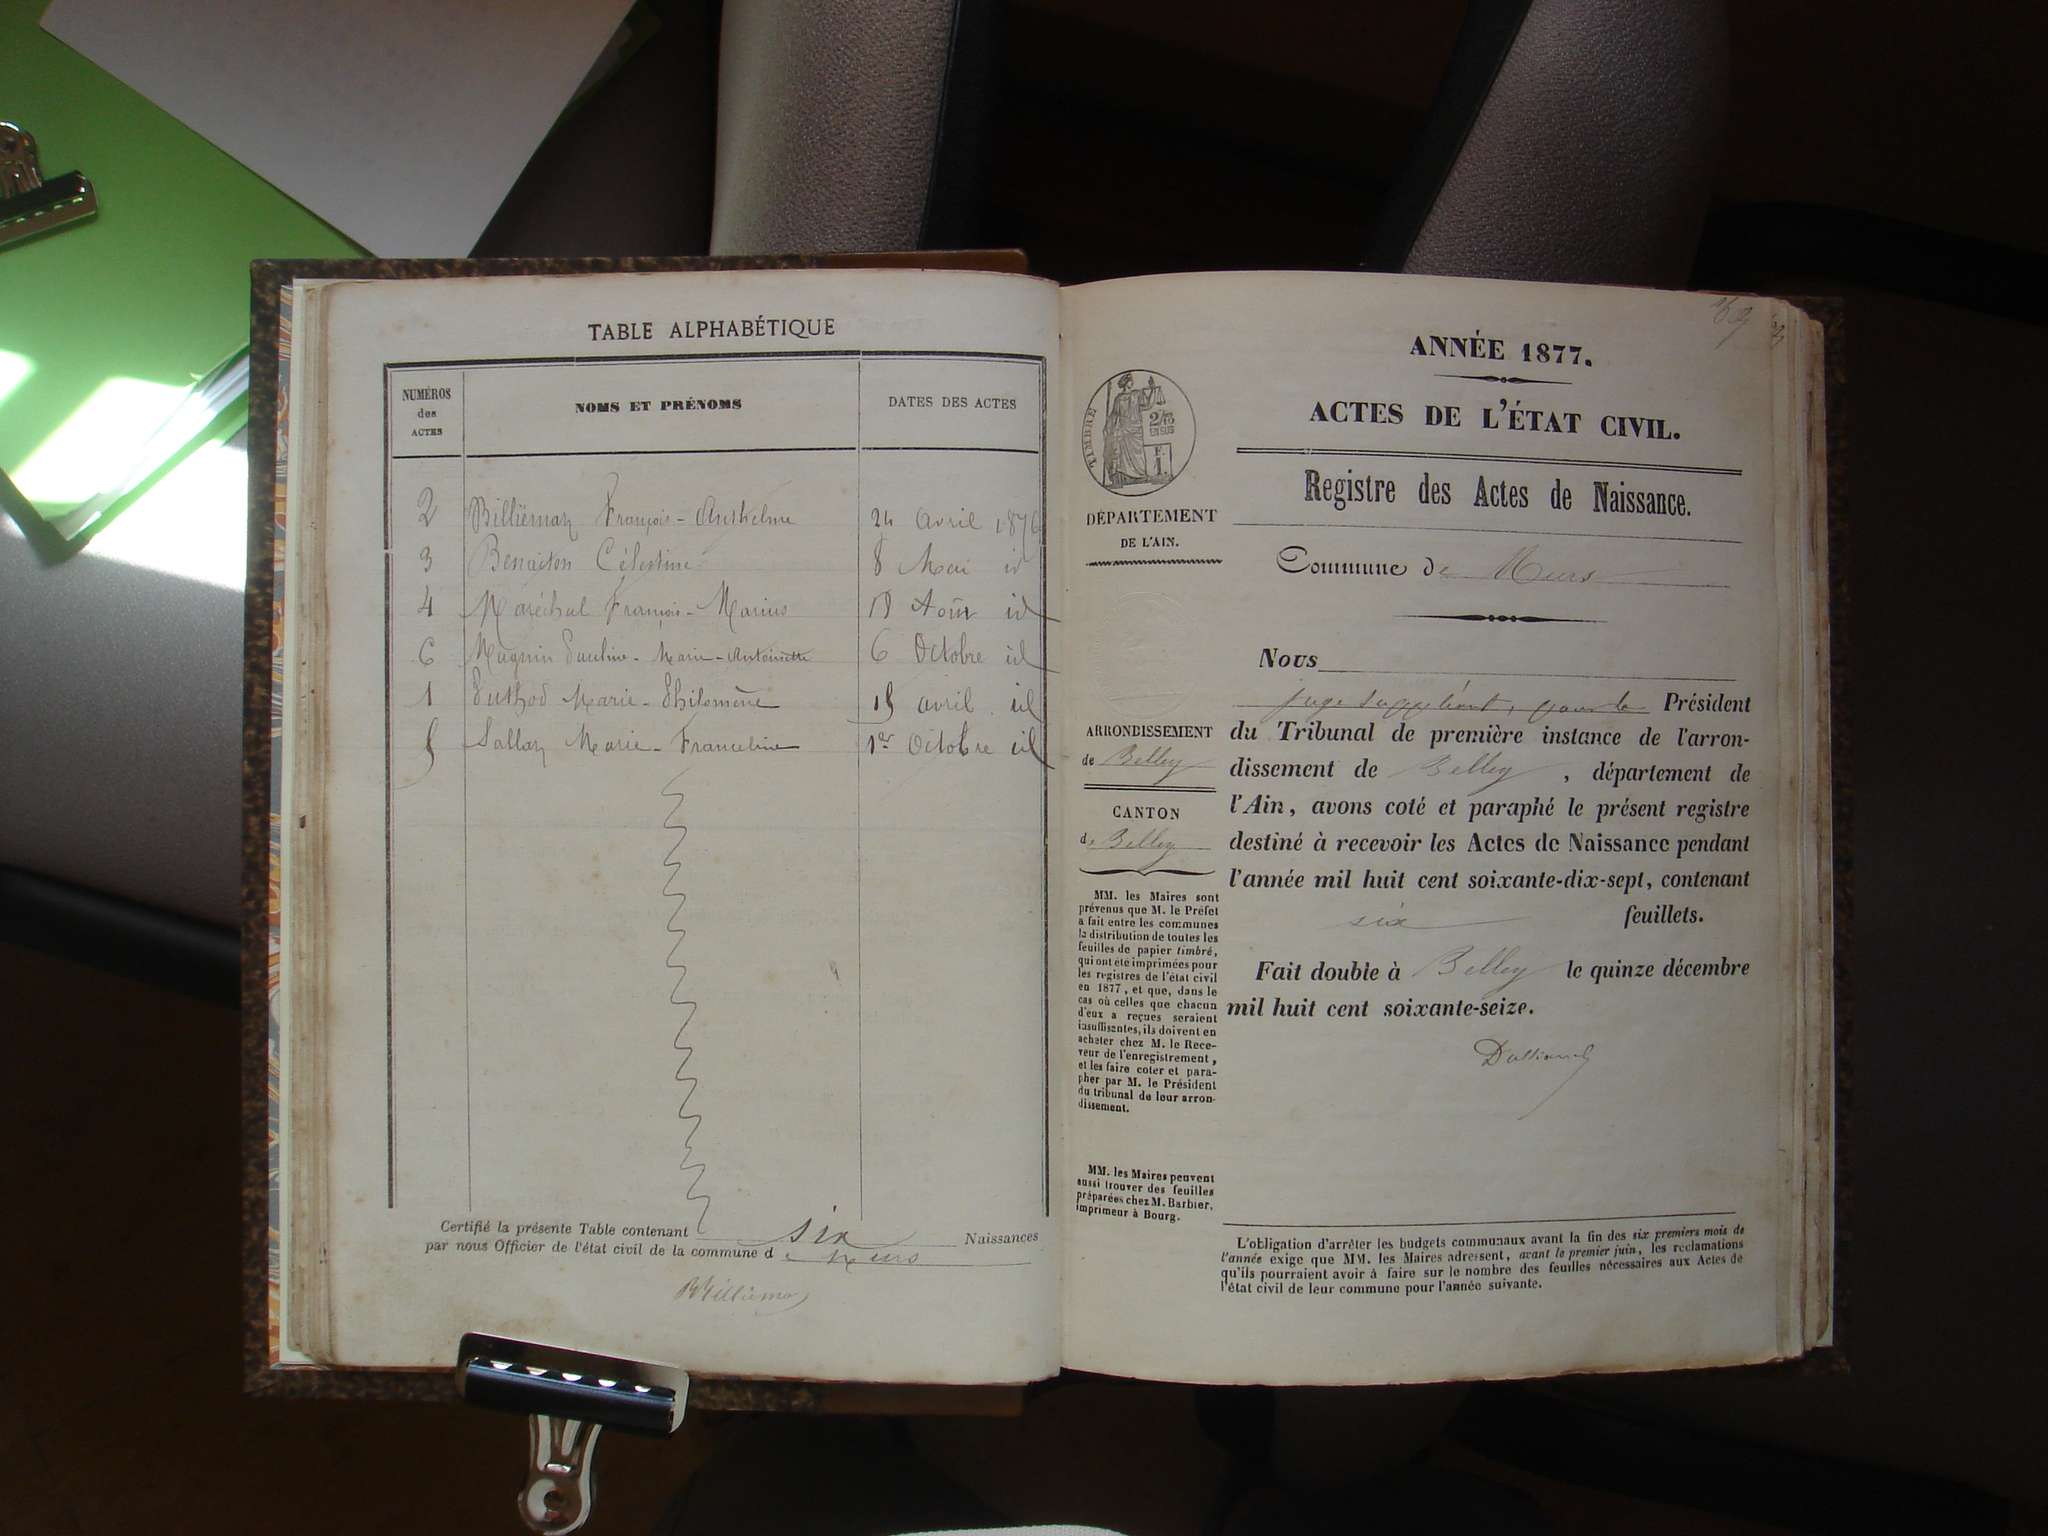 TABLE ALPHABÉTIQUE
NUMÉROS
des
ACTES
NOMS ET PRÉNOMS
DATES DES ACTES
2 François - Anthelme 24 Avril 1876
3 Benaiton Célestine 8 Mai id
4 Maréchal François - Marius 19 Août id
6 Magnin Pauline - Marie - Antoinette 6 Octobre id
1 Puthod Marie - Philomène 15 avril id
5 Marie - Franceline 1er Octobre id
Certifié la présente Table contenant six Naissances
par nous Officier de l'état civil de la commune de
ANNÉE 1877.
ACTES DE L'ÉTAT CIVIL.
Registre des Actes de Naissance.
Commune de
TIMBRE
2/10
EN SUS
F.
1.
DÉPARTEMENT
DE L'AIN.
ARRONDISSEMENT
de Belley
CANTON
de Belley
MM. les Maires sont
prévenus que M. le Préfet
a fait entre les communes
la distribution de toutes les
feuilles de papier timbré,
qui ont été imprimées pour
les registres de l'état civil
en 1877, et que, dans le
cas où celles que chacun
d'eux a reçues seraient
insuffisantes, ils doivent en
acheter chez M. le Rece-
veur de l'enregistrement,
et les faire coter et para-
pher par M. le Président
du tribunal de leur arron-
dissement.
MM. les Maires peuvent
aussi trouver des feuilles
préparées chez M. Barbier,
imprimeur à Bourg.
Nous
juge suppléant, pour le Président
du Tribunal de première instance de l'arron-
dissement de Belley, département de
l'Ain, avons coté et paraphé le présent registre
destiné à recevoir les Actes de Naissance pendant
l'année mil huit cent soixante-dix-sept, contenant
six feuillets.
Fait double à Belley le quinze décembre
mil huit cent soixante-seize.
L'obligation d'arrêter les budgets communaux avant la fin des six premiers mois de
l'année exige que MM. les Maires adressent, avant le premier juin, les réclamations
qu'ils pourraient avoir à faire sur le nombre des feuilles nécessaires aux Actes de
l'état civil de leur commune pour l'année suivante.